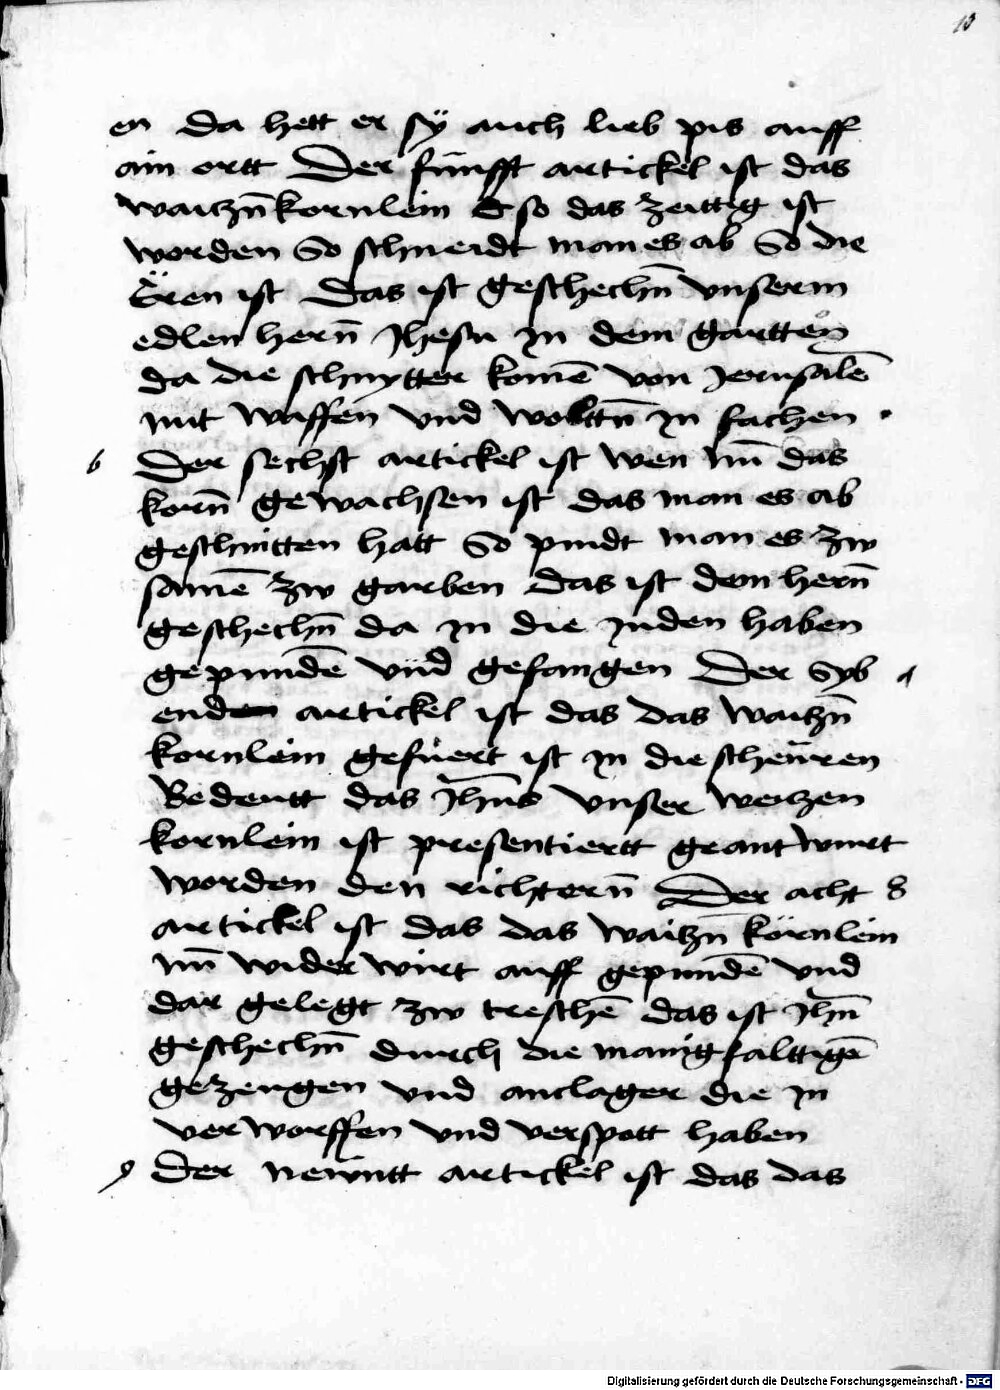 10
en da hett er sy auch lieb pis auff
ain ortt Der fünfft artickel ist das
waitzn̄kornlein so das zeittig ist
worden So schneidt man es ab So die
Ëren ist Das ist geschechn̄ vnserm
edlen hern̄ Jhesu in dem gartten
da die schnytter komē von Jerusalē
mit waffen vnd woltn̄ in fachen
6 Der sechst artickel ist wen nu̅ das
korn̄ gewachsen ist das man es ab
geschnitten hatt So pindt man es zw
samē zw garben das ist dem hern̄
geschechn̄ da in die juden haben
gepundē vnd gefangen Der syb
enden artickel ist das das waitzn̄
kornlein gefüert ist in die scheuren
Bedeutt das Jh̅us vnser weitzen
kornlein ist presentiertt geantwurt
worden den richtern̄ Der acht 8
artickel ist das das waitzn̄ körnlein
nu̅ wider wirt auff gepundē vnd
dar gelegt zw treschē das ist Jh̅u
geschechn̄ durch die manigfalttigē
gezeugen vnd anclager die in
verworffen vnd verspott haben
9 Der newntt artickel ist das das
Digitalisierung gefördert durch die Deutsche Forschungsgemeinschaft - DFG